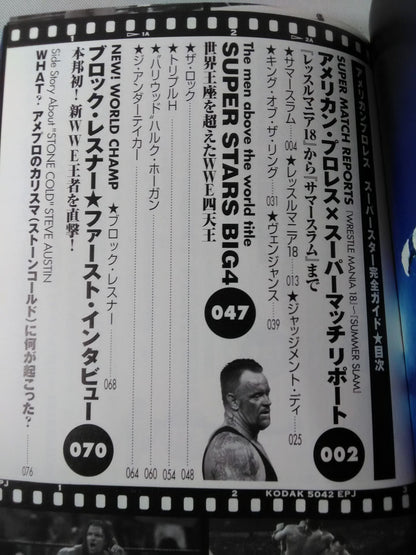 アメリカンプロレス スーパースター完全ガイド★目次
SUPER MATCH REPORTS 『WRESTLE MANIA 18』~『SUMMER SLAM』
アメリカン・プロレス×スーパーマッチリポート 002
『レッスルマニア18』から『サマースラム』まで
★サマースラム 004
★レッスルマニア18 013
★ジャッジメント・ディ 025
★キング・オブ・ザ・リング 031
★ヴェンジャンス 039
The men above the world title
SUPER STARS BIG4 047
世界王座を超えたWWE四天王
★ザ・ロック 048
★トリプルH 054
★"ハリウッド"ハルク・ホーガン 060
★ジ・アンダーテイカー 064
NEW! WORLD CHAMP ★ブロック・レスナー 068
ブロック・レスナー★ファースト・インタビュー 070
本邦初!新WWE王者を直撃!
Side Story About "STONE COLD" STEVE AUSTIN
WHAT?アメプロのカリスマ〈ストーンコールド〉に何が起こった? 076
1A
2
2A
1
2
KODAK 5042 EPJ
3